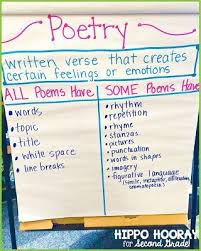 Poetry
written verse that creates
certain feelings or emotions
ALL Poems Have
• words
• topic
• title
• white space
• line breaks
SOME Poems Have
• rhythm
• repetition
• rhyme
• stanzas
• pictures
• punctuation
• words in shapes
• imagery
• figurative language
(simile, metaphor, alliteration,
onomatopoeia)
HIPPO HOORAY
for Second Grade!